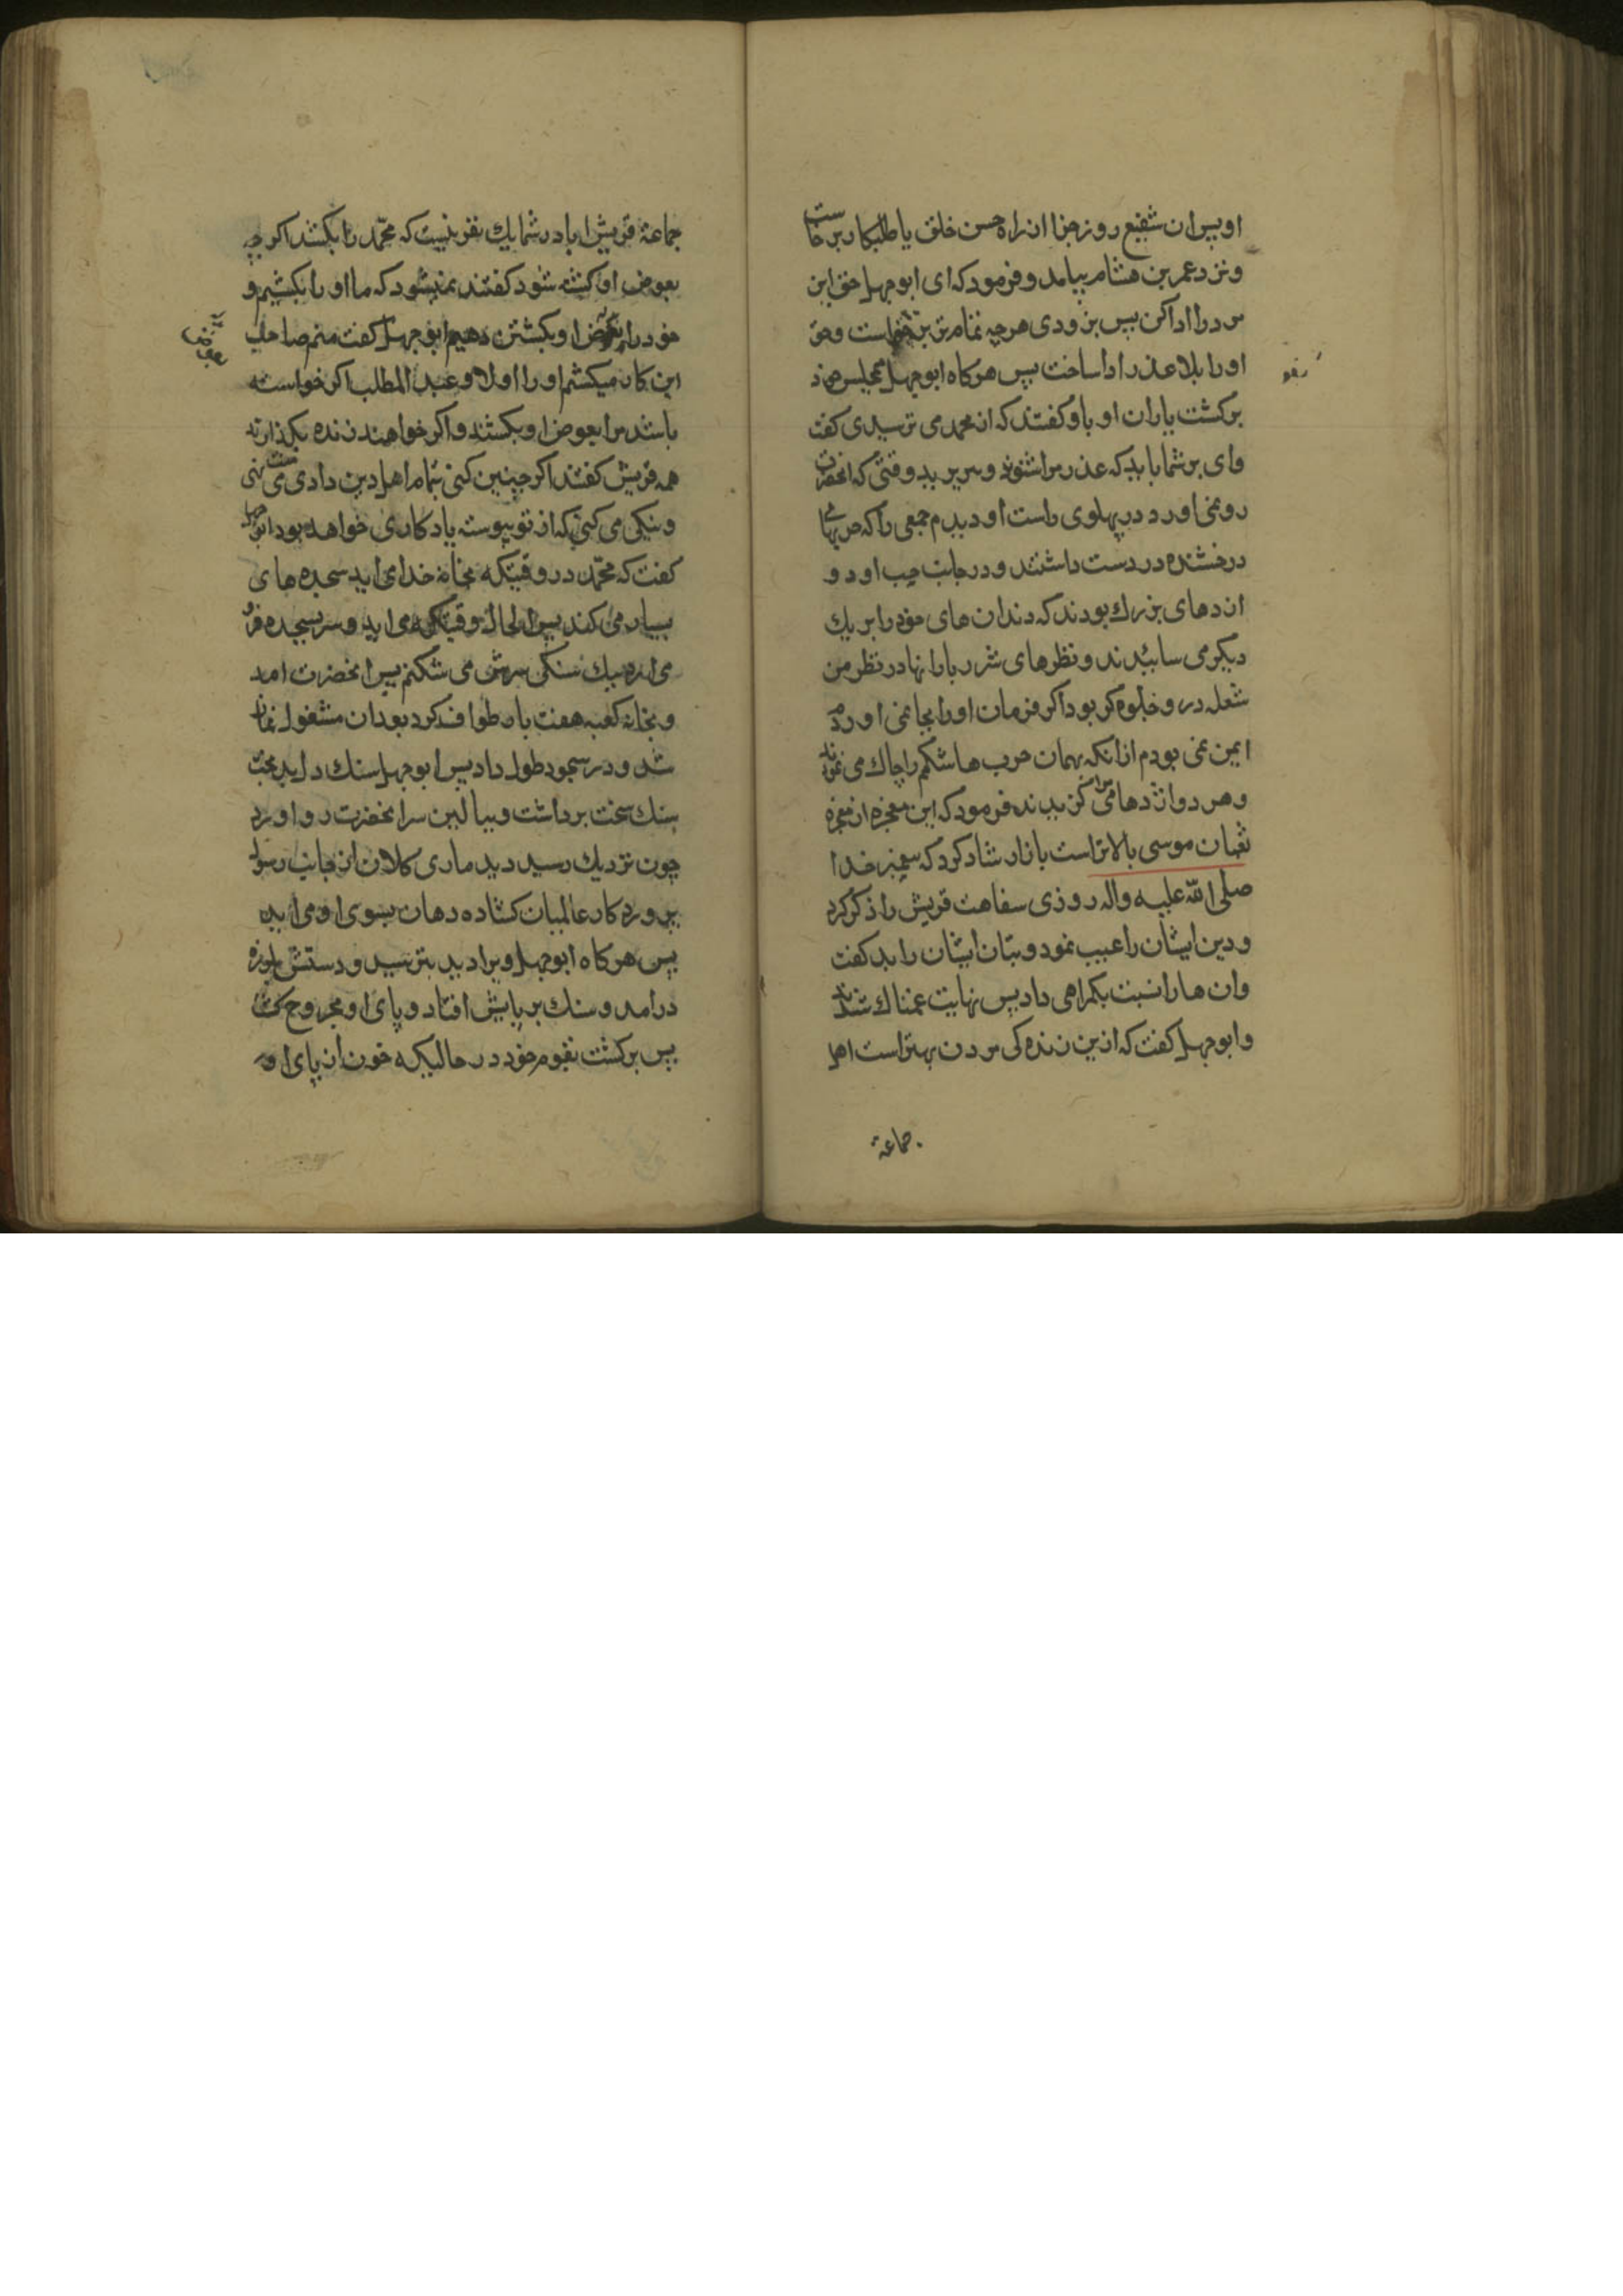 او پس ان شفیع روز جزا از راه حسن خلق با طلبکار برخاست
و نزد عمر بن هشام بیامد و فرمود که ای ابو جهل حق این
مرد را ادا کن پس بزودی هر چه تمام تر برخواست و حق
او را بلا عذر ادا ساخت پس هرکاه ابو جهل بمجلس خود
برکشت یاران او باو کفتند که از محمد می ترسیدی کفت
وای بر شما باید که عذر مرا شنوید و بپذیرید وقتی که انحضرت
رو بمن اورد در پهلوی راست او دیدم جمعی را که حربهای
درخشنده در دست داشتند و در جانب چپ او دو
اژدهای بزرك بودند که دندان های خود را بر یك
دیکر می سائیدند و نظرهای شرر بار انها در نظر من
شعله در و جلوه کر بود اکر فرمان او را بجا نمی اوردم
ایمن نمی بودم از انکه بهمان حرب ها شکمم را چاك می نمودند
و هر دو اژدها مرا می کزیدند فرمود که این معجزه از معجزه
ثعبان موسی بالاتر است باز ارشاد کرد که پیغمبر خدا
صلی الله علیه واله روزی سفاهت قریش را ذکر کرد
و دین ایشان را عیب نمود و بتان ایشان را بد کفت
و ان ها را نسبت بکمراهی داد پس نهایت غمناك شدند
و ابو جهل کفت که ازین زنده کی مردن بهتر است اما
جماعة
جماعة قریش ایا در شما یك نفر نیست که محمد را بکشد اکر چه
بعوض او کشته شود کفتند نمیشود که ما او را بکشیم و
خود را بعوض او بکشتن دهیم ابو جهل کفت منم صاحب
بعوض
این کار میکشم او را اولاد عبد المطلب اکر خواسته
باشند مرا بعوض او بکشند و اکر خواهند زنده بکذارند
همه قریش کفتند اکر چنین کنی بتمام اهل دین دادی منت می نهی
و نیکی می کنی که از تو پیوسته یادکاری خواهد بود ابو جهل
کفت که محمد در وقتیکه بخانه خدا می اید سجده های
بسیار می کند پس الحال وقتیکه می اید و سر بسجده فرو
می ارد بیك سنکی سرش می شکنم پس انحضرت امد
و بخانه کعبه هفت بار طواف کرد بعد ان مشغول نماز
شد و در سجود طول داد پس ابو جهل سنك دل بدبخت
سنك سخت برداشت و ببالین سر انحضرت رو اورد
چون نزدیك رسید دید ماری کلان از جانب رسول
پروردکار عالمیان کشاده دهان بسوی او می اید
پس هرکاه ابو جهل ویرا دید بترسید و دستش بلرزه
درامد و سنك بر پایش افتاد و پای او مجروح کشت
پس برکشت بقوم خود در حالیکه خون از پای او